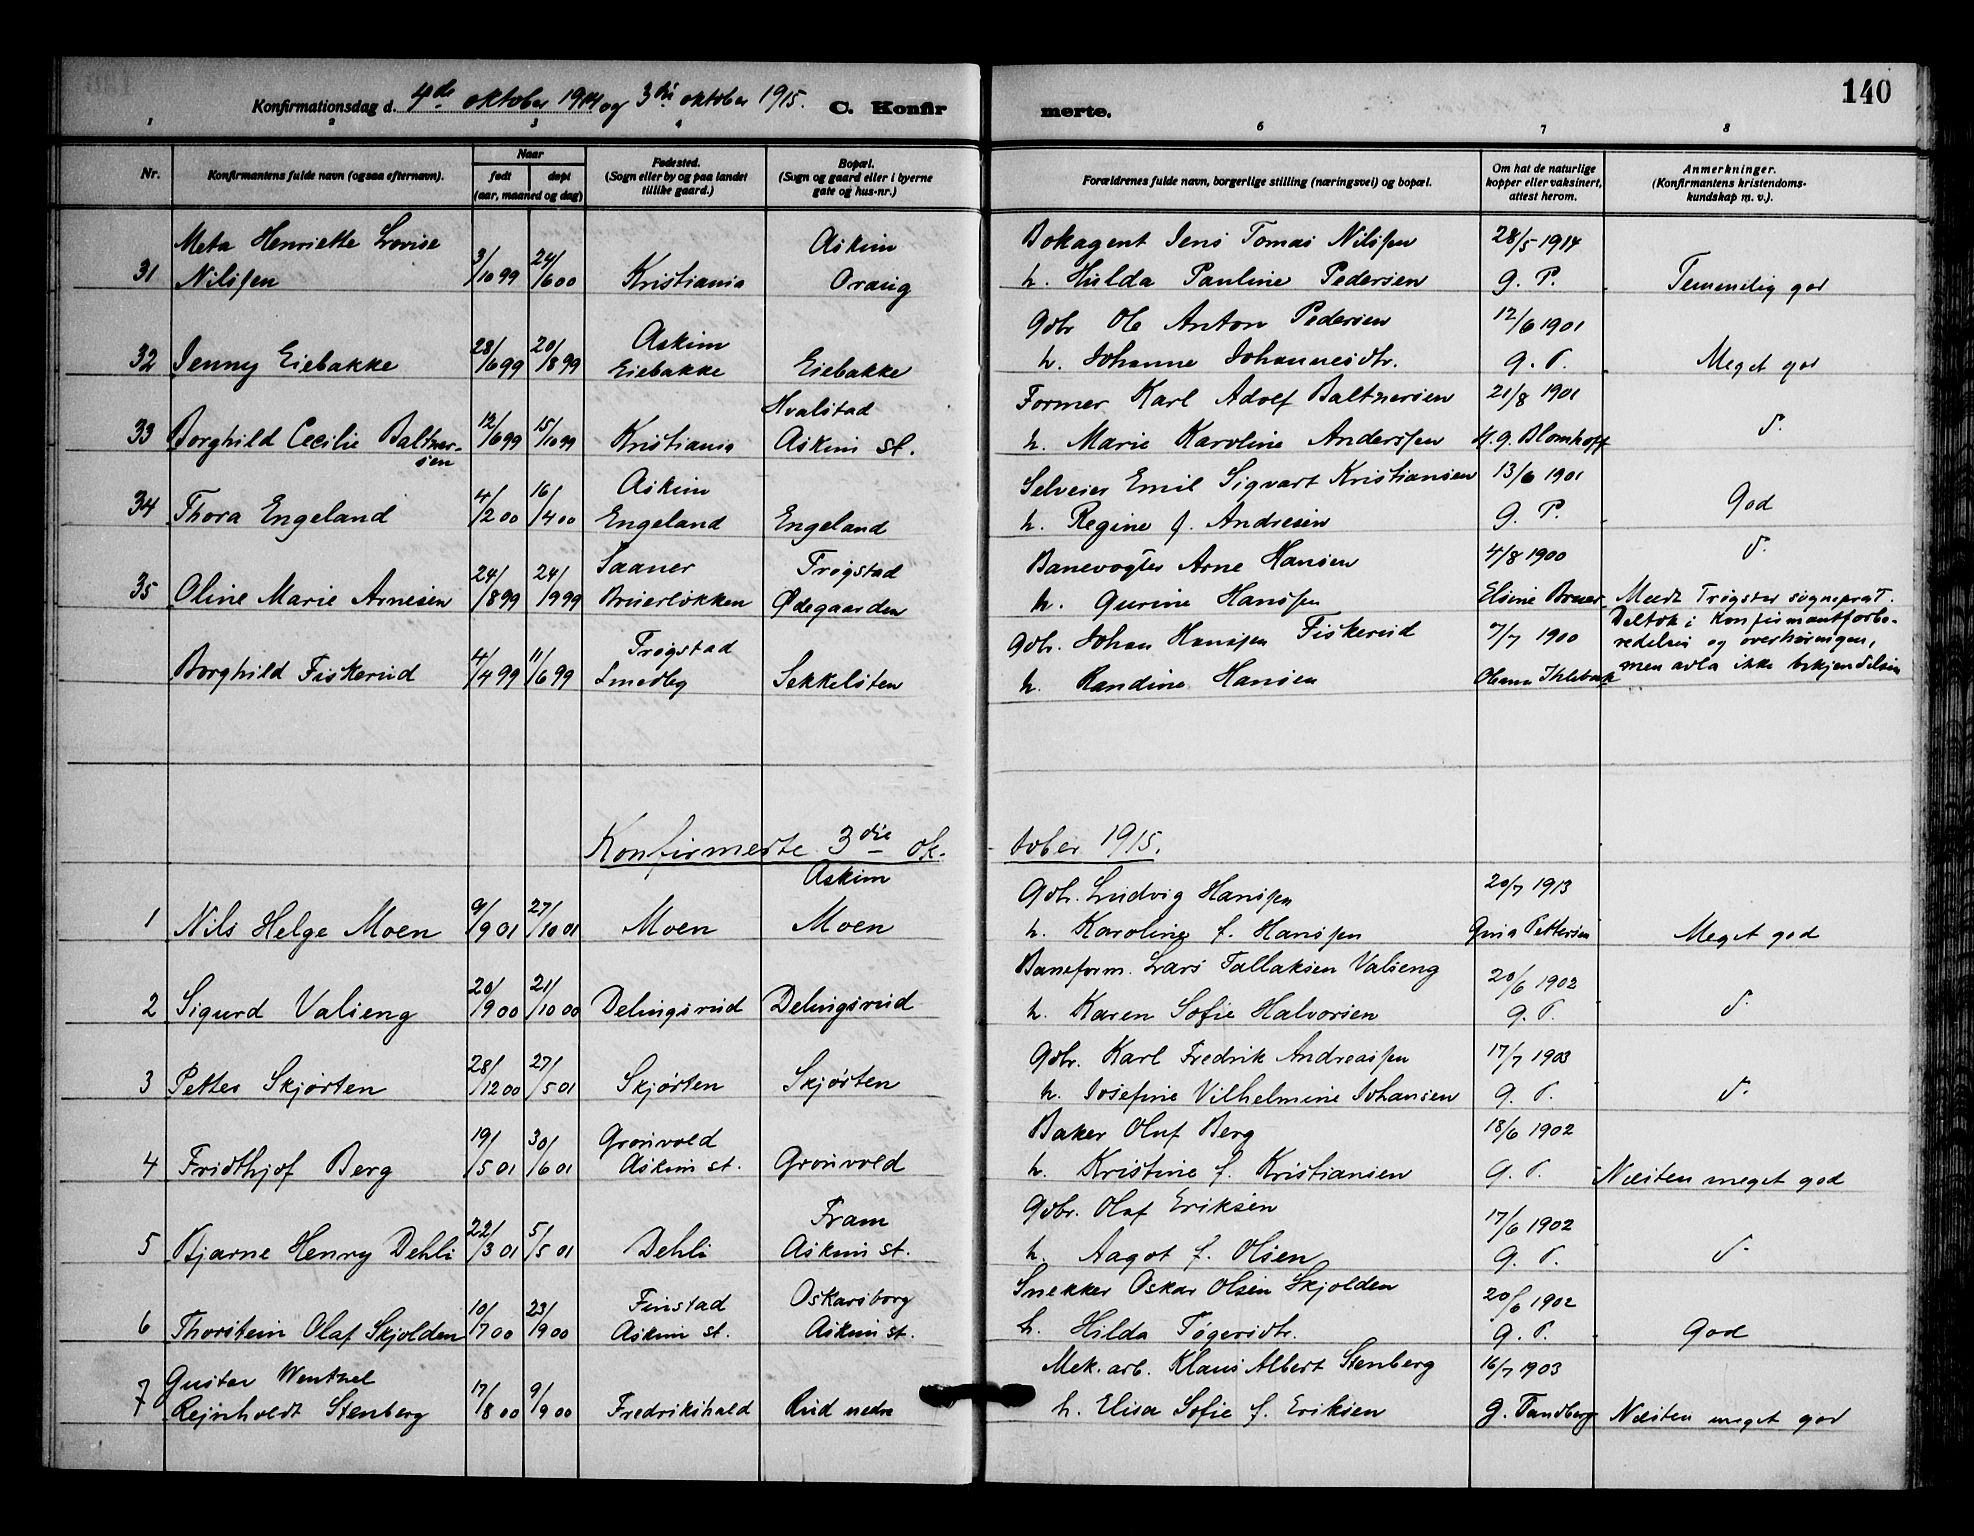 140
Konfirmationsdag d. 4de oktober 1914 og 3di oktober 1915. C. Konfir
merte.
1 2 3 4 6 7 8
Nr. Konfirmantens fulde navn (ogsaa efternavn). Naar
født døpt
(aar, maaned og dag)
Fødested.
(Sogn eller by og paa landet
tillike gaard.)
Bopæl.
(Sogn og gaard eller i byerne
gate og hus-nr.)
Forældrenes fulde navn, borgerlige stilling (næringsvei) og bopæl.
Om hat de naturlige
kopper eller vaksinert,
attest herom.
Anmerkninger.
(Konfirmantens kristendoms-
kundskap m. v.).
Meta Henriette Lovise Askim Bokagent Jens Tomas Nilssen 28/5 1914
31 Nilssen 3/10 99 24/6 00 Kristiania Oraug h. Hulda Pauline Pedersen g. P. Temmelig god
Askim Gbr Ole Anton Pedersen 12/6 1901
32 Jenny Eiebakke 28/6 99 20/8 99 Eiebakke Eiebakke h. Johanne Johannesdtr. g. P. Meget god
Hvalstad Former Karl Adolf Baltzersen 21/8 1901
33 Borghild Cecilie Baltzer- 12/6 99 15/10 99 Kristiania Askim st. h. Marie Karoline Anderssen H. G. Blomhoff d.
sen
Askim Selveier Emil Sigvart Kristiansen 13/6 1901
34 Thora Engeland 4/2 00 16/4 00 Engeland Engeland h. Regine f. Andresen g. P. God
Saaner Trøgstad Banevogter Arne Hansen 4/8 1900 d.
35 Oline Marie Arnesen 24/8 99 24/9 99 Bruerløkken Ødegaarden h. Gurine Hanssen Elsine Bruer Medt Trøgstad sogneprest.
Trøgstad Gbr. Johan Hanssen Fiskerud 7/7 1900 Deltok i Konfirmantforbe-
redelsen og overhøringen,
Borghild Fiskerud 4/4 99 11/6 99 Smedby Sekkelsten h. Randine Hansen men avla ikke bekjendelsen
Konfirmerte 3die ok-
tober 1915.
Askim Gbr. Ludvig Hanssen 20/7 1913
1 Nils Helge Moen 9/9 01 27/10 01 Moen Moen h. Karoline f. Hanssen Gina Pettersen Meget god
Baneform. Lars Tallaksen Valseng 20/6 1902
2 Sigurd Valseng 20/9 00 21/10 00 Delingsrud Delingsrud h. Karen Sofie Halvorsen g. P. d.
Gbr. Karl Fredrik Andreassen 17/7 1903
3 Petter Skjørten 28/12 00 27/5 01 Skjørten Skjørten h. Josefine Vilhelmine Johansen g. P. d.
Grønvold Baker Oluf Berg 18/6 1902
4 Fridthjof Berg 19/5 01 30/6 01 Askim st. Grønvold h. Kristine f. Kristiansen g. P. Næsten meget god
Fram Gbr. Olaf Eriksen 17/6 1902
5 Bjarne Henry Dehli 22/3 01 5/5 01 Dehli Askim st. h. Aagot f. Olsen g. P. d.
Finstad Oskarsborg Snekker Oskar Olsen Skjolden 20/6 1902
6 Thorstein Olaf Skjolden 10/7 00 23/9 00 Askim st. Askim st. h. Hilda Tøgersdtr. g. P. God
Gustav Wentzel Mek. arb. Klaus Albert Stenberg 16/7 1903
7 Rejnholdt Stenberg 17/8 00 9/9 00 Fredrikshald Rud nedre h. Elisa Sofie f. Eriksen g. Tandberg Næsten meget god